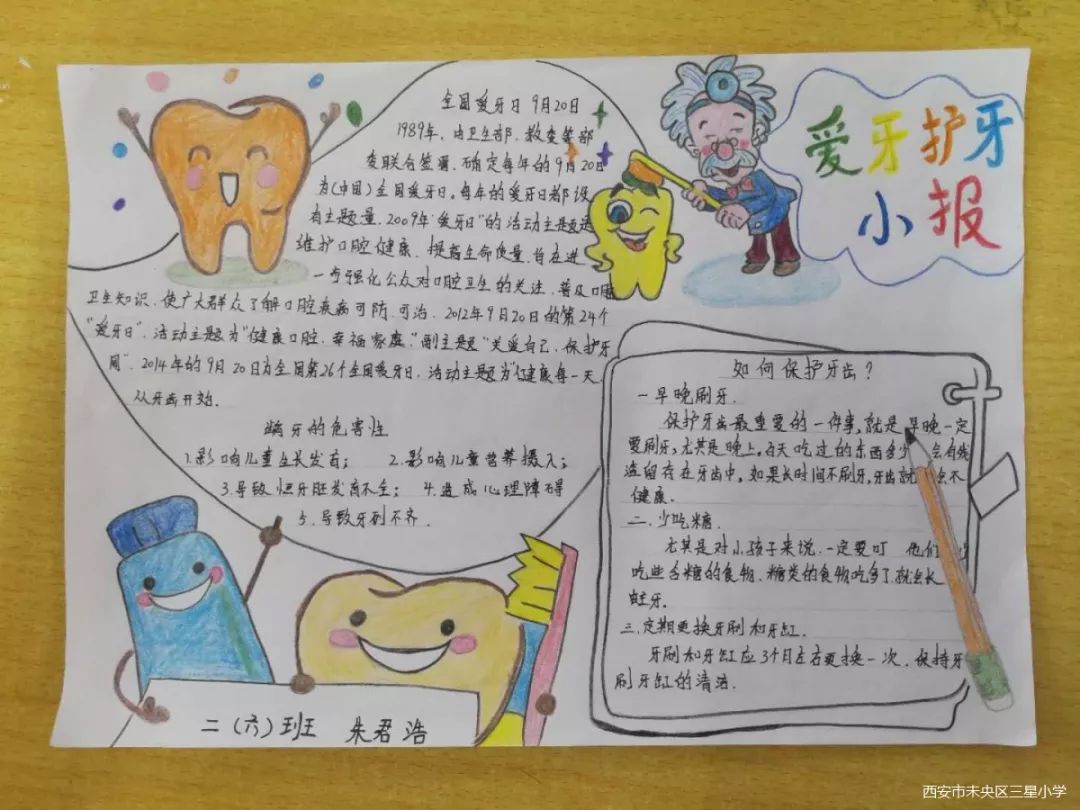 爱牙护牙
小报
全国爱牙日 9月20日
1989年,由卫生部、教委等部
委联合签署,确定每年的9月20日
为(中国)全国爱牙日。每年的爱牙日都设
有主题,2009年"爱牙日"的活动主题是
维护口腔健康,提高生命质量,旨在进
一步强化公众对口腔卫生的关注,普及口腔
卫生知识,使广大群众了解口腔疾病可防、可治,2012年9月20日的第24个
"爱牙日",活动主题为"健康口腔,幸福家庭"副主题"关爱自己,保护牙
周",2014年的9月20日为全国第26个全国爱牙日,活动主题为"健康每一天,
从牙齿开始.
龋牙的危害性
1.影响儿童生长发育; 2.影响儿童营养摄入;
3.导致恒牙胚发育不全; 4.造成心理障碍
5.导致牙列不齐.
如何保护牙齿?
一早晚刷牙.
保护牙齿最重要的一件事,就是早晚一定
要刷牙,尤其是晚上,白天吃过的东西多少会有残
渣留存在牙齿中,如果长时间不刷牙,牙齿就会不
健康.
二.少吃糖.
尤其是对小孩子来说,一定要叮 他们
吃些含糖的食物,糖类的食物吃多了,就会长
蛀牙.
三.定期更换牙刷和牙缸.
牙刷和牙缸应3个月左右更换一次,保持牙
刷牙缸的清洁.
二(六)班 朱君浩
西安市未央区三星小学